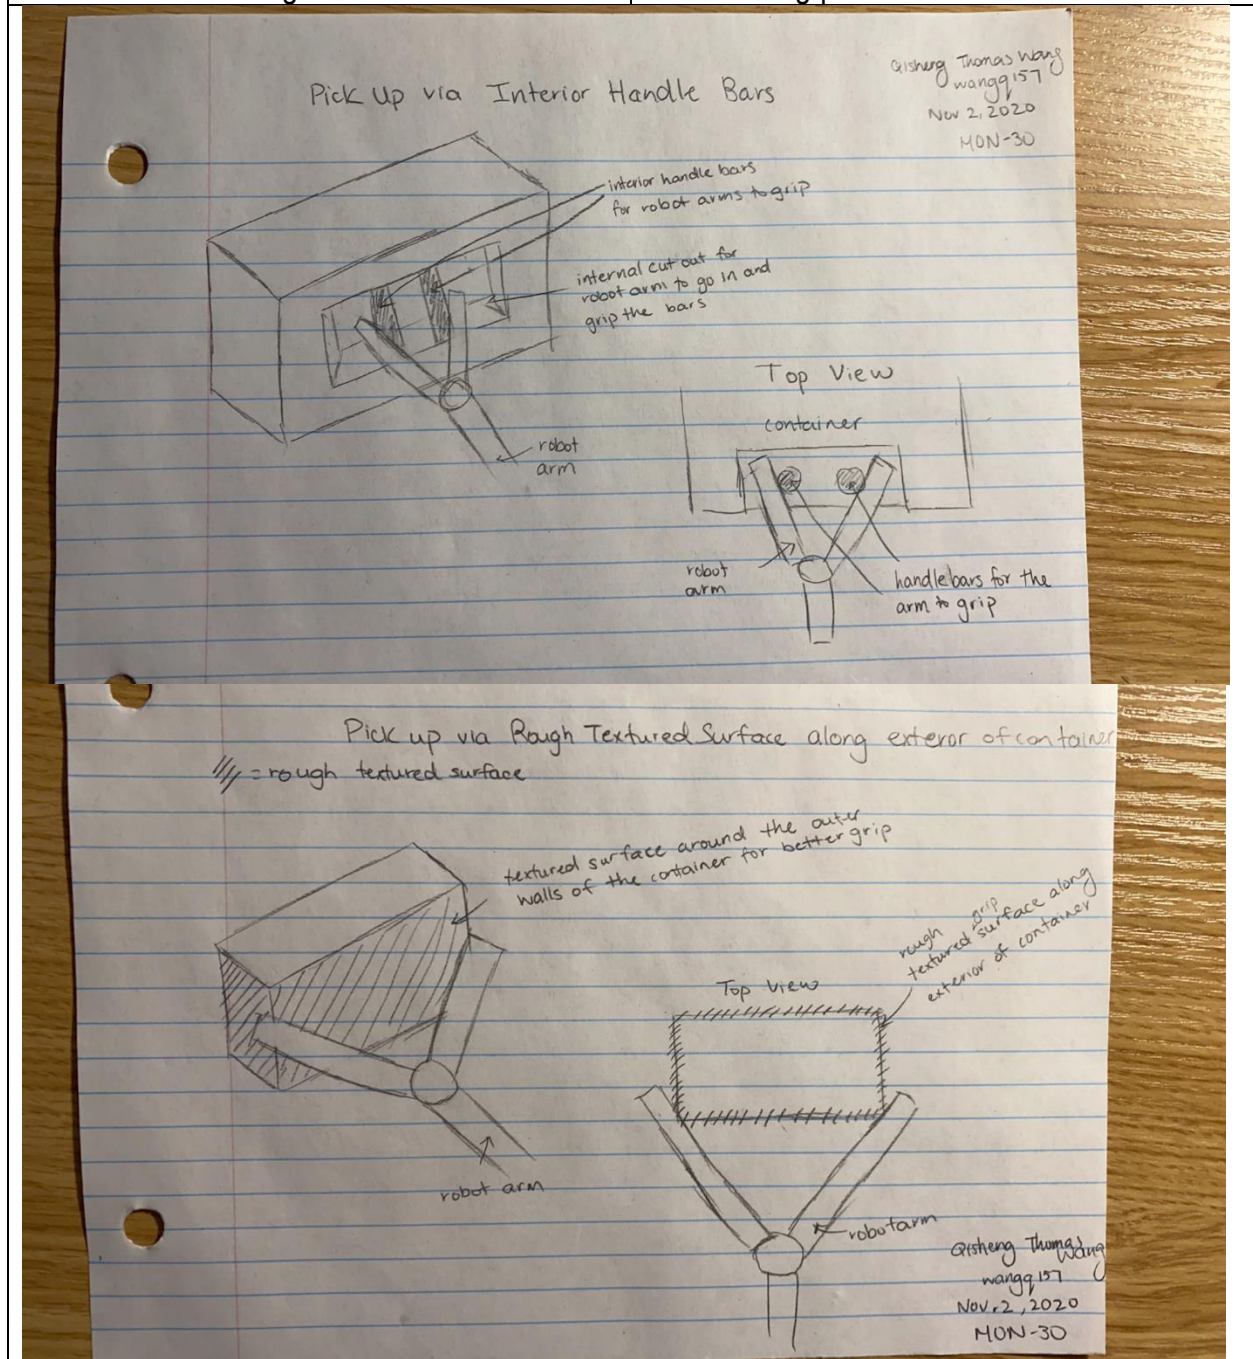 Pick Up via Interior Handle Bars
Qisheng Thomas Wang
wangq157
Nov 2, 2020
MON-30
interior handle bars
for robot arms to grip
internal cut out for
robot arm to go in and
grip the bars
robot
arm
Top View
container
robot
arm
handlebars for the
arm to grip
Pick up via Rough Textured Surface along exteror of container
= rough textured surface
textured surface around the outer
walls of the container for better grip
robot arm
Top View
rough grip
textured surface along
exterior of container
robot arm
Qisheng Thomas
Wang
wangq157
Nov. 2, 2020
MON-30